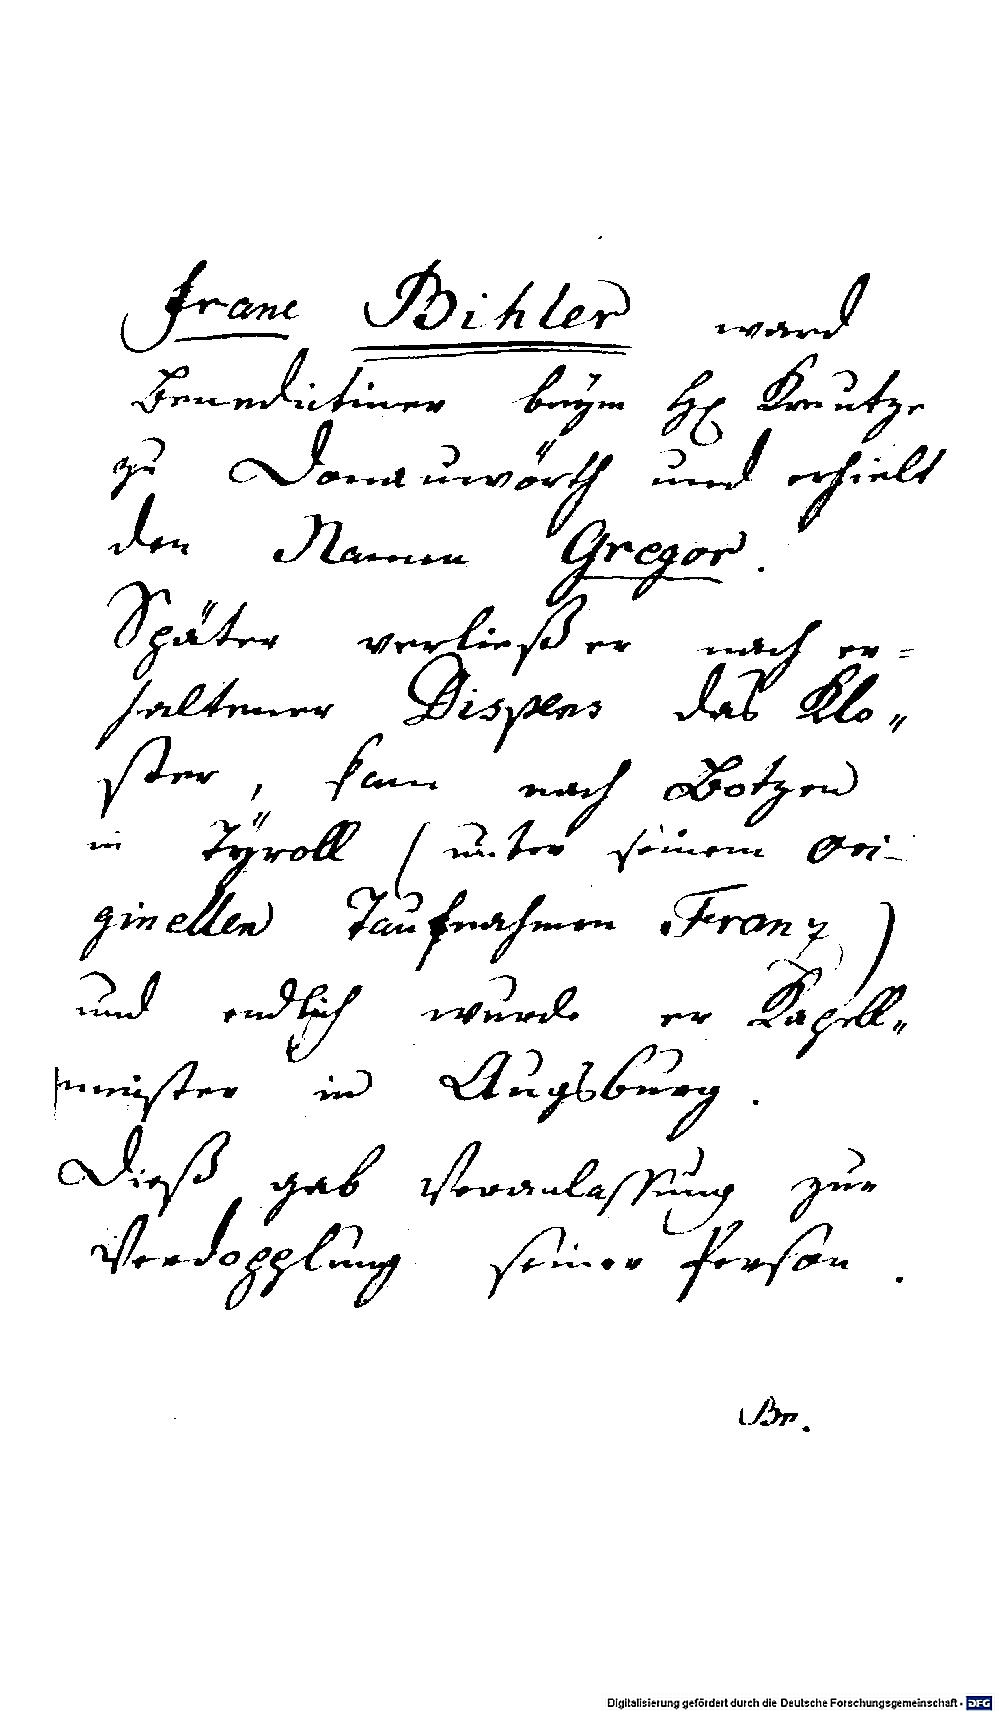 Franc Bihler ward
Benedictiner beÿm Hl Kreutze
zu Donauwörth und erhielt
den Namen Gregor.
Später verließ er nach er=
haltener Dispens das Klo„
ster, kam nach Botzen
in Tÿroll (unter seinem ori-
ginellen Taufnahmen Franz)
und endlich wurde er Kapell„
meister in Augsburg.
Dieß gab Veranlassung zur
Verdopplung seiner Person.
Br.
Digitalisierung gefördert durch die Deutsche Forschungsgemeinschaft - DFG